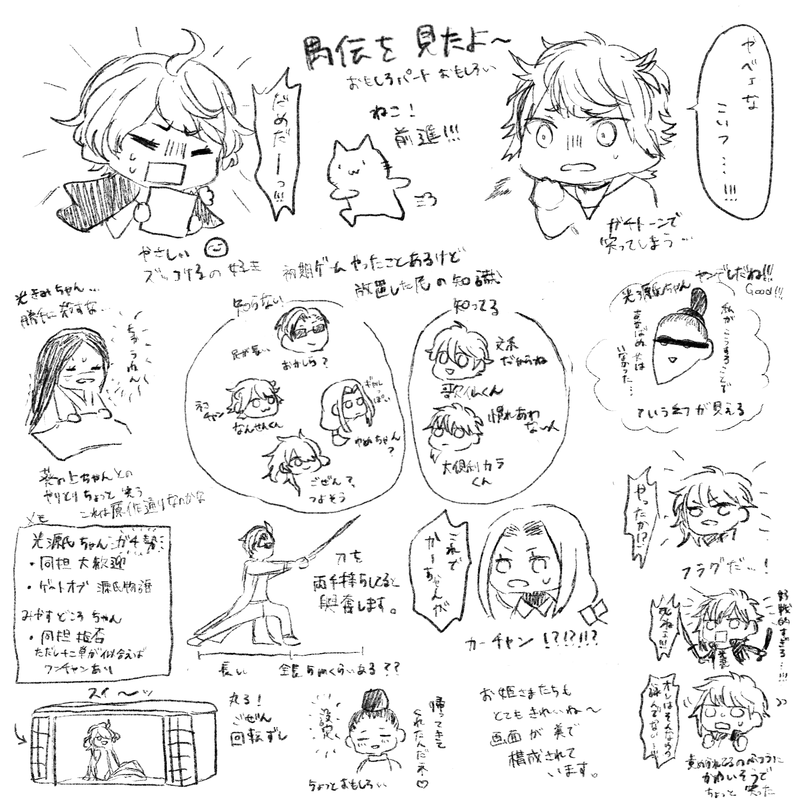 禺伝を見たよ〜
おもしろパート おもしろい
だめだーっ!!!
ねこ!
前進!!!
ヤベェな
こいつ…!!!
ガチトーンで
笑ってしまう…
やさしい
ズッコケるの 好き
初期ゲームやったことあるけど
放置した尼の知識
知らない
足が長い
おかしら?
ネコ
チャン
なんせんくん
ギャル
っぽい
やめちゃん
?
ごぜん?
つよそう
知ってる
文系
だからね
歌仙くん
慣れあわ
ない人
大倶利カラ
くん
ヤンデレだね!!!
Good!!!
光源氏ちゃん
私がここまることで
いなかった…
ていう幻が見える
勝手に殺すな…
葵の上ちゃんとの
やりとりちょっと笑う
これは原作通りなのかな
メモ
光源氏ちゃんガチ勢
・同担大歓迎
・ゲートオブ 源氏物語
みやすどころちゃん
・同担拒否
ただし十二単が似合えば
ワンチャンあり
刀を
両手持ちしてると
興奮します。
長い
全長5mくらいある??
これで
かーちゃんが
カーチャン!?!?!?
やったか!?
フラグだ…!
好戦的すぎる…!!!
死ねェ!!!
かわいそうで
ちょっと笑った
スイ〜ッ
丸る!
ごぜん
回転ずし
説突
帰ってきて
くれたんだネ♡
ちょっとおもしろい
お姫さまたちも
とてもきれいね〜
画面が美で
構成されて
います。